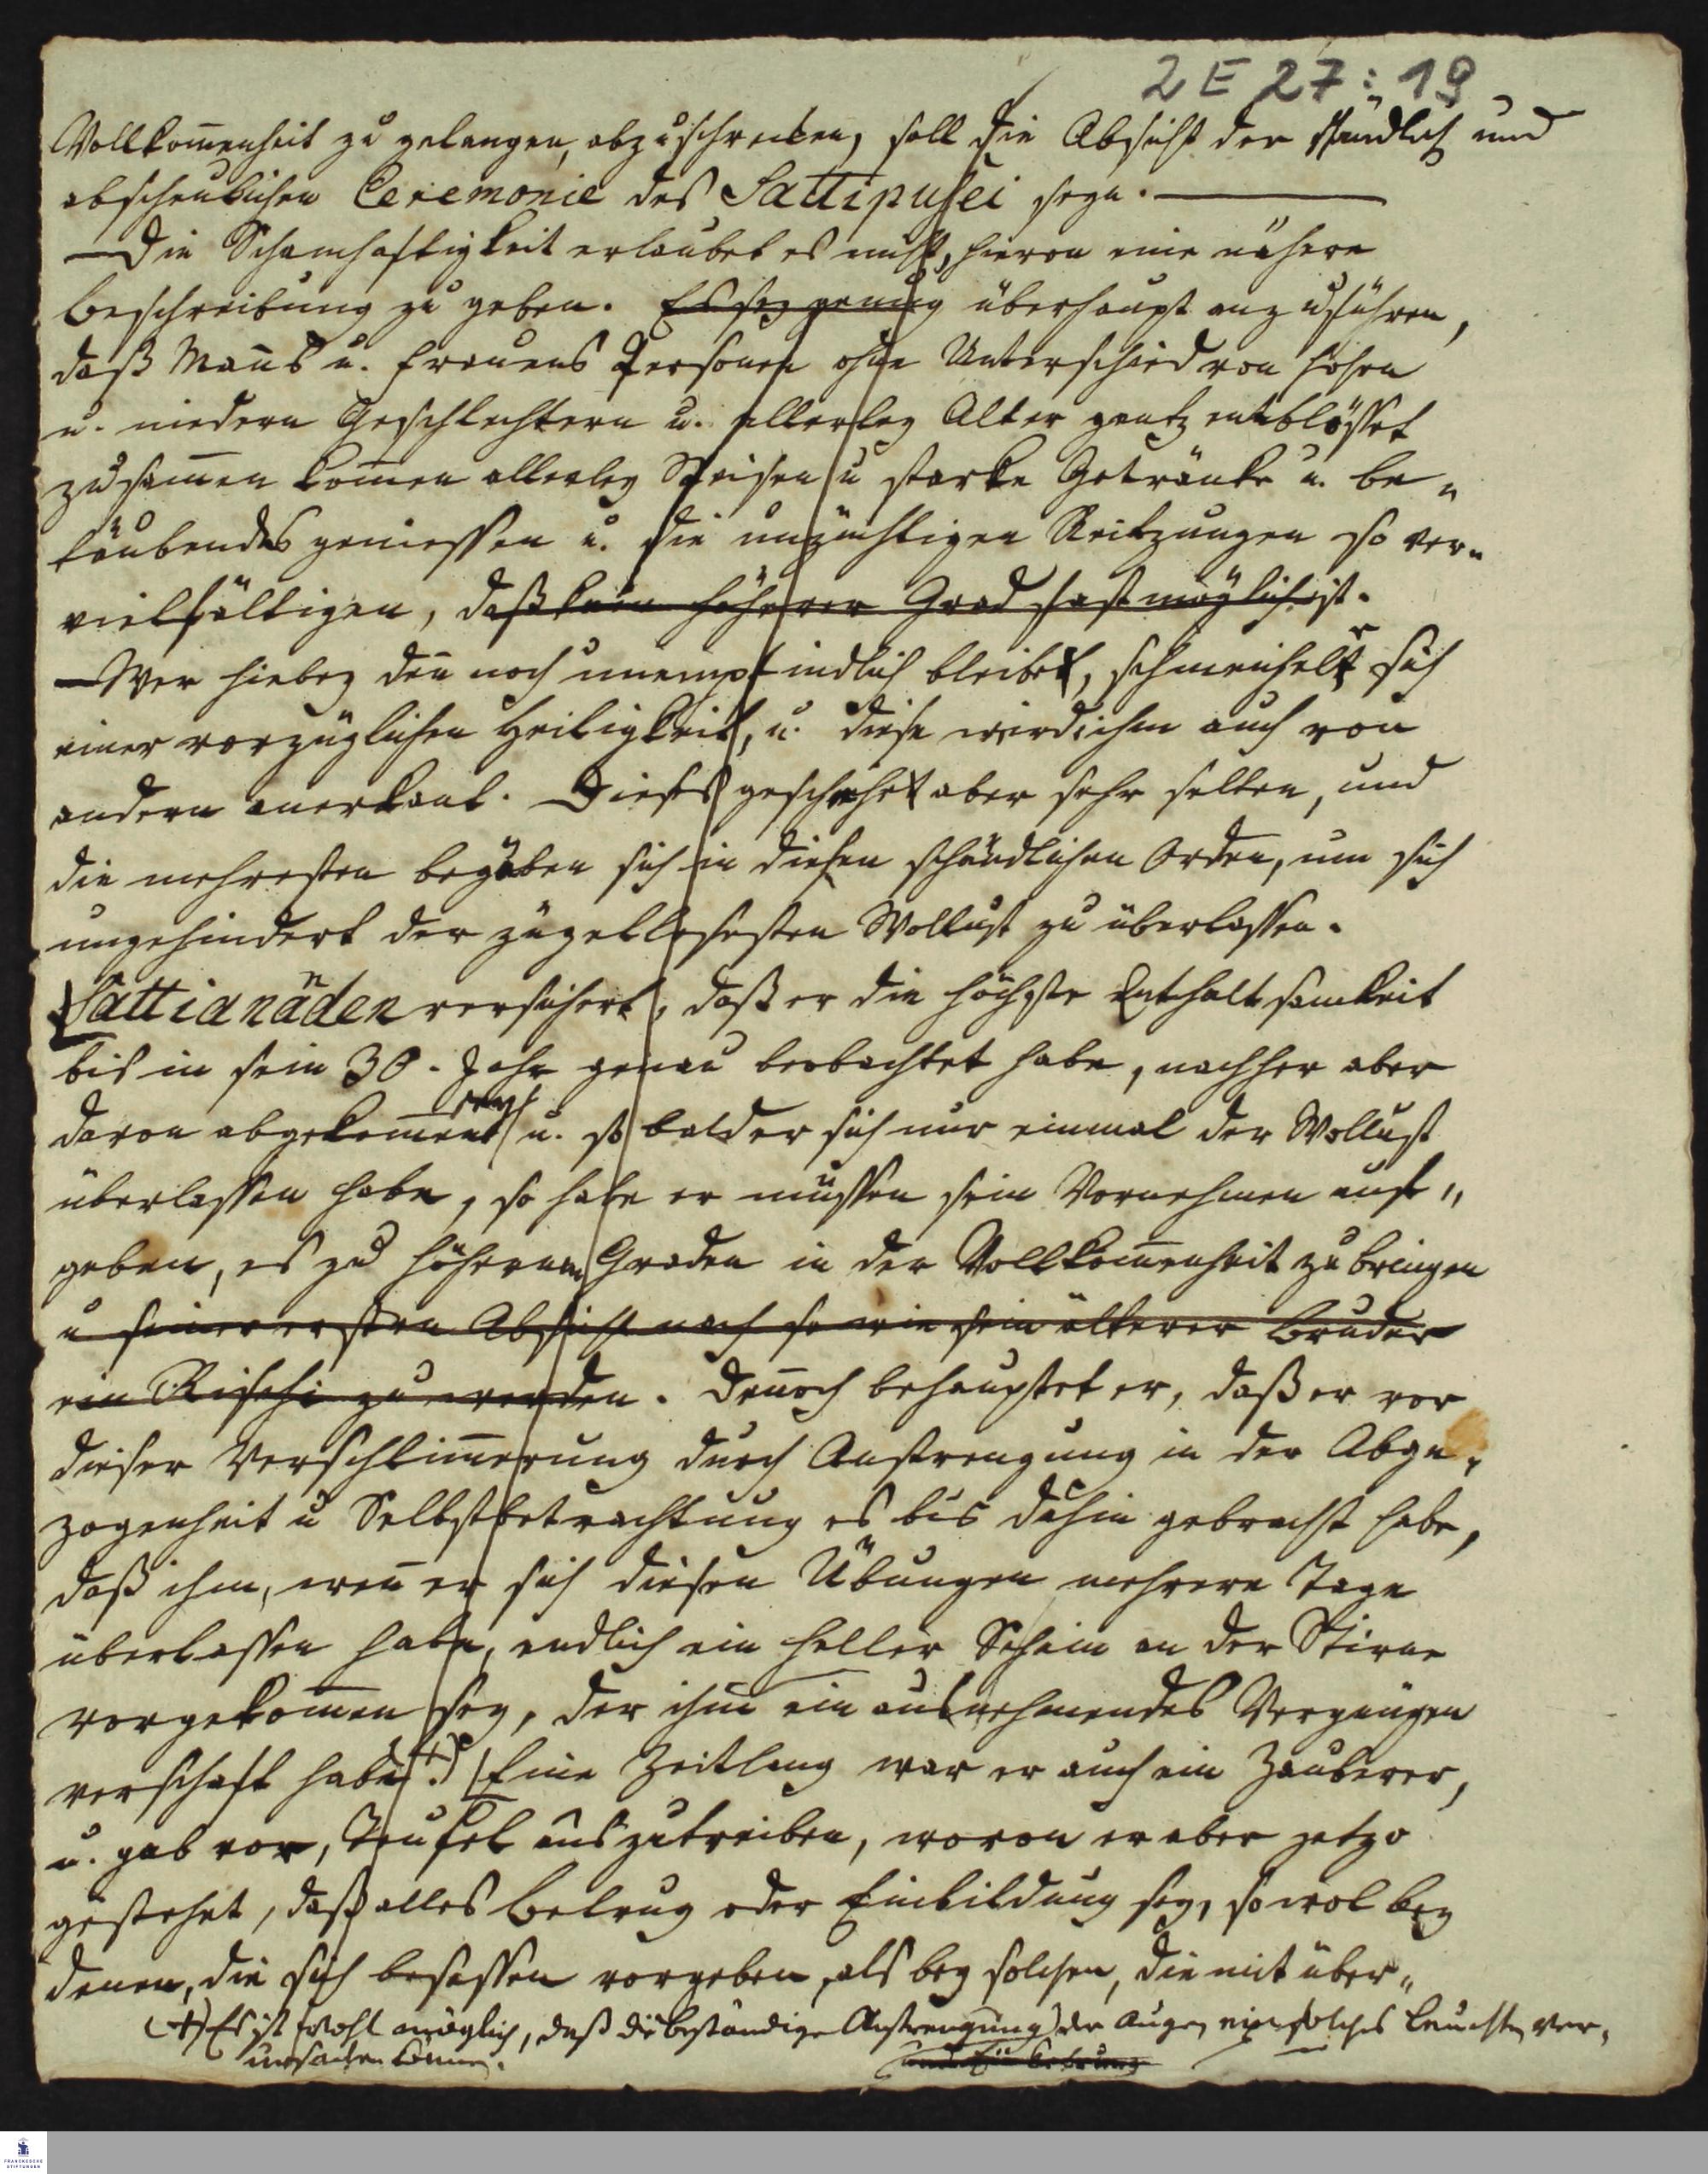 2 E 27 : 19
Vollkom̄enheit zu gelangen, abzuschrecken, soll die Absicht der schändlich und
abscheulichen Ceremonie des Sattipusei seyn. —
— Die Schamhaftigkeit erlaubet es nicht, hievon eine nähere
Beschreibung zu geben. Es sey genug überhaupt anzuführen,
daß Man̄s u. Frauens Personen ohne Unterschied von hohen
u. niedern Geschlechtern u. allerley Alter gantz entblösset
zusam̄en kom̄en allerley Speisen u starke Getränke u. be„
täubendes geniessen u. die unzüchtigen Reitzungen so ver„
vielfältigen, daß kein höherer Grad fast möglich ist.
— Wer hiebey den̄ noch unempfindlich bleibet, schmeichelt sich
einer vorzüglichen Heiligkeit, u. diese wird ihm auch von
andern anerkant. Dieses geschehet aber sehr selten, und
die mehresten begäben sich in diesen schändlichen Orden, um sich
ungehindert der zügellosesten Wollust zu überlassen.
Sattianäden versichert, daß er die höchste Enthaltsamkeit
bis in sein 30. Jahr genau beobachtet habe, nachher aber
davon abgekom̄en sey u. so bald er sich nur einmal der Wollust
überlassen habe, so habe er müssen sein Vornehmen auf„
geben, es zu höhern Graden in der Vollkom̄enheit zu bringen
u seiner ersten Absicht nach so wie sein älterer Bruder
ein Rischi zu werden. Den̄och behauptet er, daß er vor
dieser Verschlim̄erung durch Anstrengung in der Abge„
zogenheit u Selbstbetrachtung es bis dahin gebracht habe,
daß ihm, wen̄ er sich diesen Übungen mehrere Tage
überlassen habe, endlich ein heller Schein an der Stirne
vorgekom̄en sey, der ihm ein ausnehmendes Vergnügen
verschaft habe (+). Eine Zeitlang war er auch ein Zauberer,
u. gab vor, Teufel auszutreiben, wovon er aber jetzo
gestehet, daß alles Betrug oder Einbildung sey, so wol bey
denen, die sich besessen vorgeben, als bey solchen, die mit über„
(+) Es ist wohl möglich, daß die beständige Anstrengung der Augen ein solches Leuchten ver„
ursachen könne.
FRANCKESCHE
STIFTUNGEN